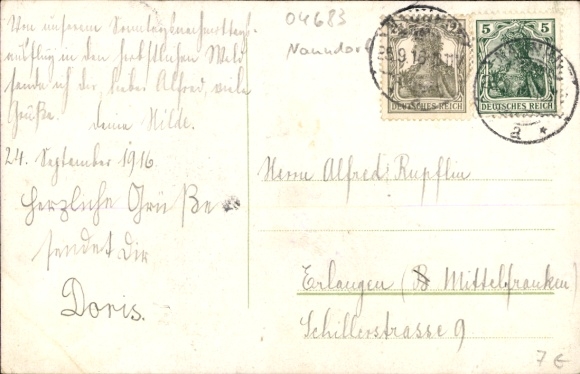 Von unserem Sonntagsnachmittags-
ausflug in den herbstlichen Wald
sende ich dir, lieber Alfred, viele
Grüße.
Deine Hilde.
24. September 1916
Herzliche Grüße
sendet Dir
Doris.
04683
Naundorf
5 5
DEUTSCHES REICH
DEUTSCHES REICH
Herrn Alfred Rupflin
Erlangen (B Mittelfranken)
Schillerstrasse 9
7 €